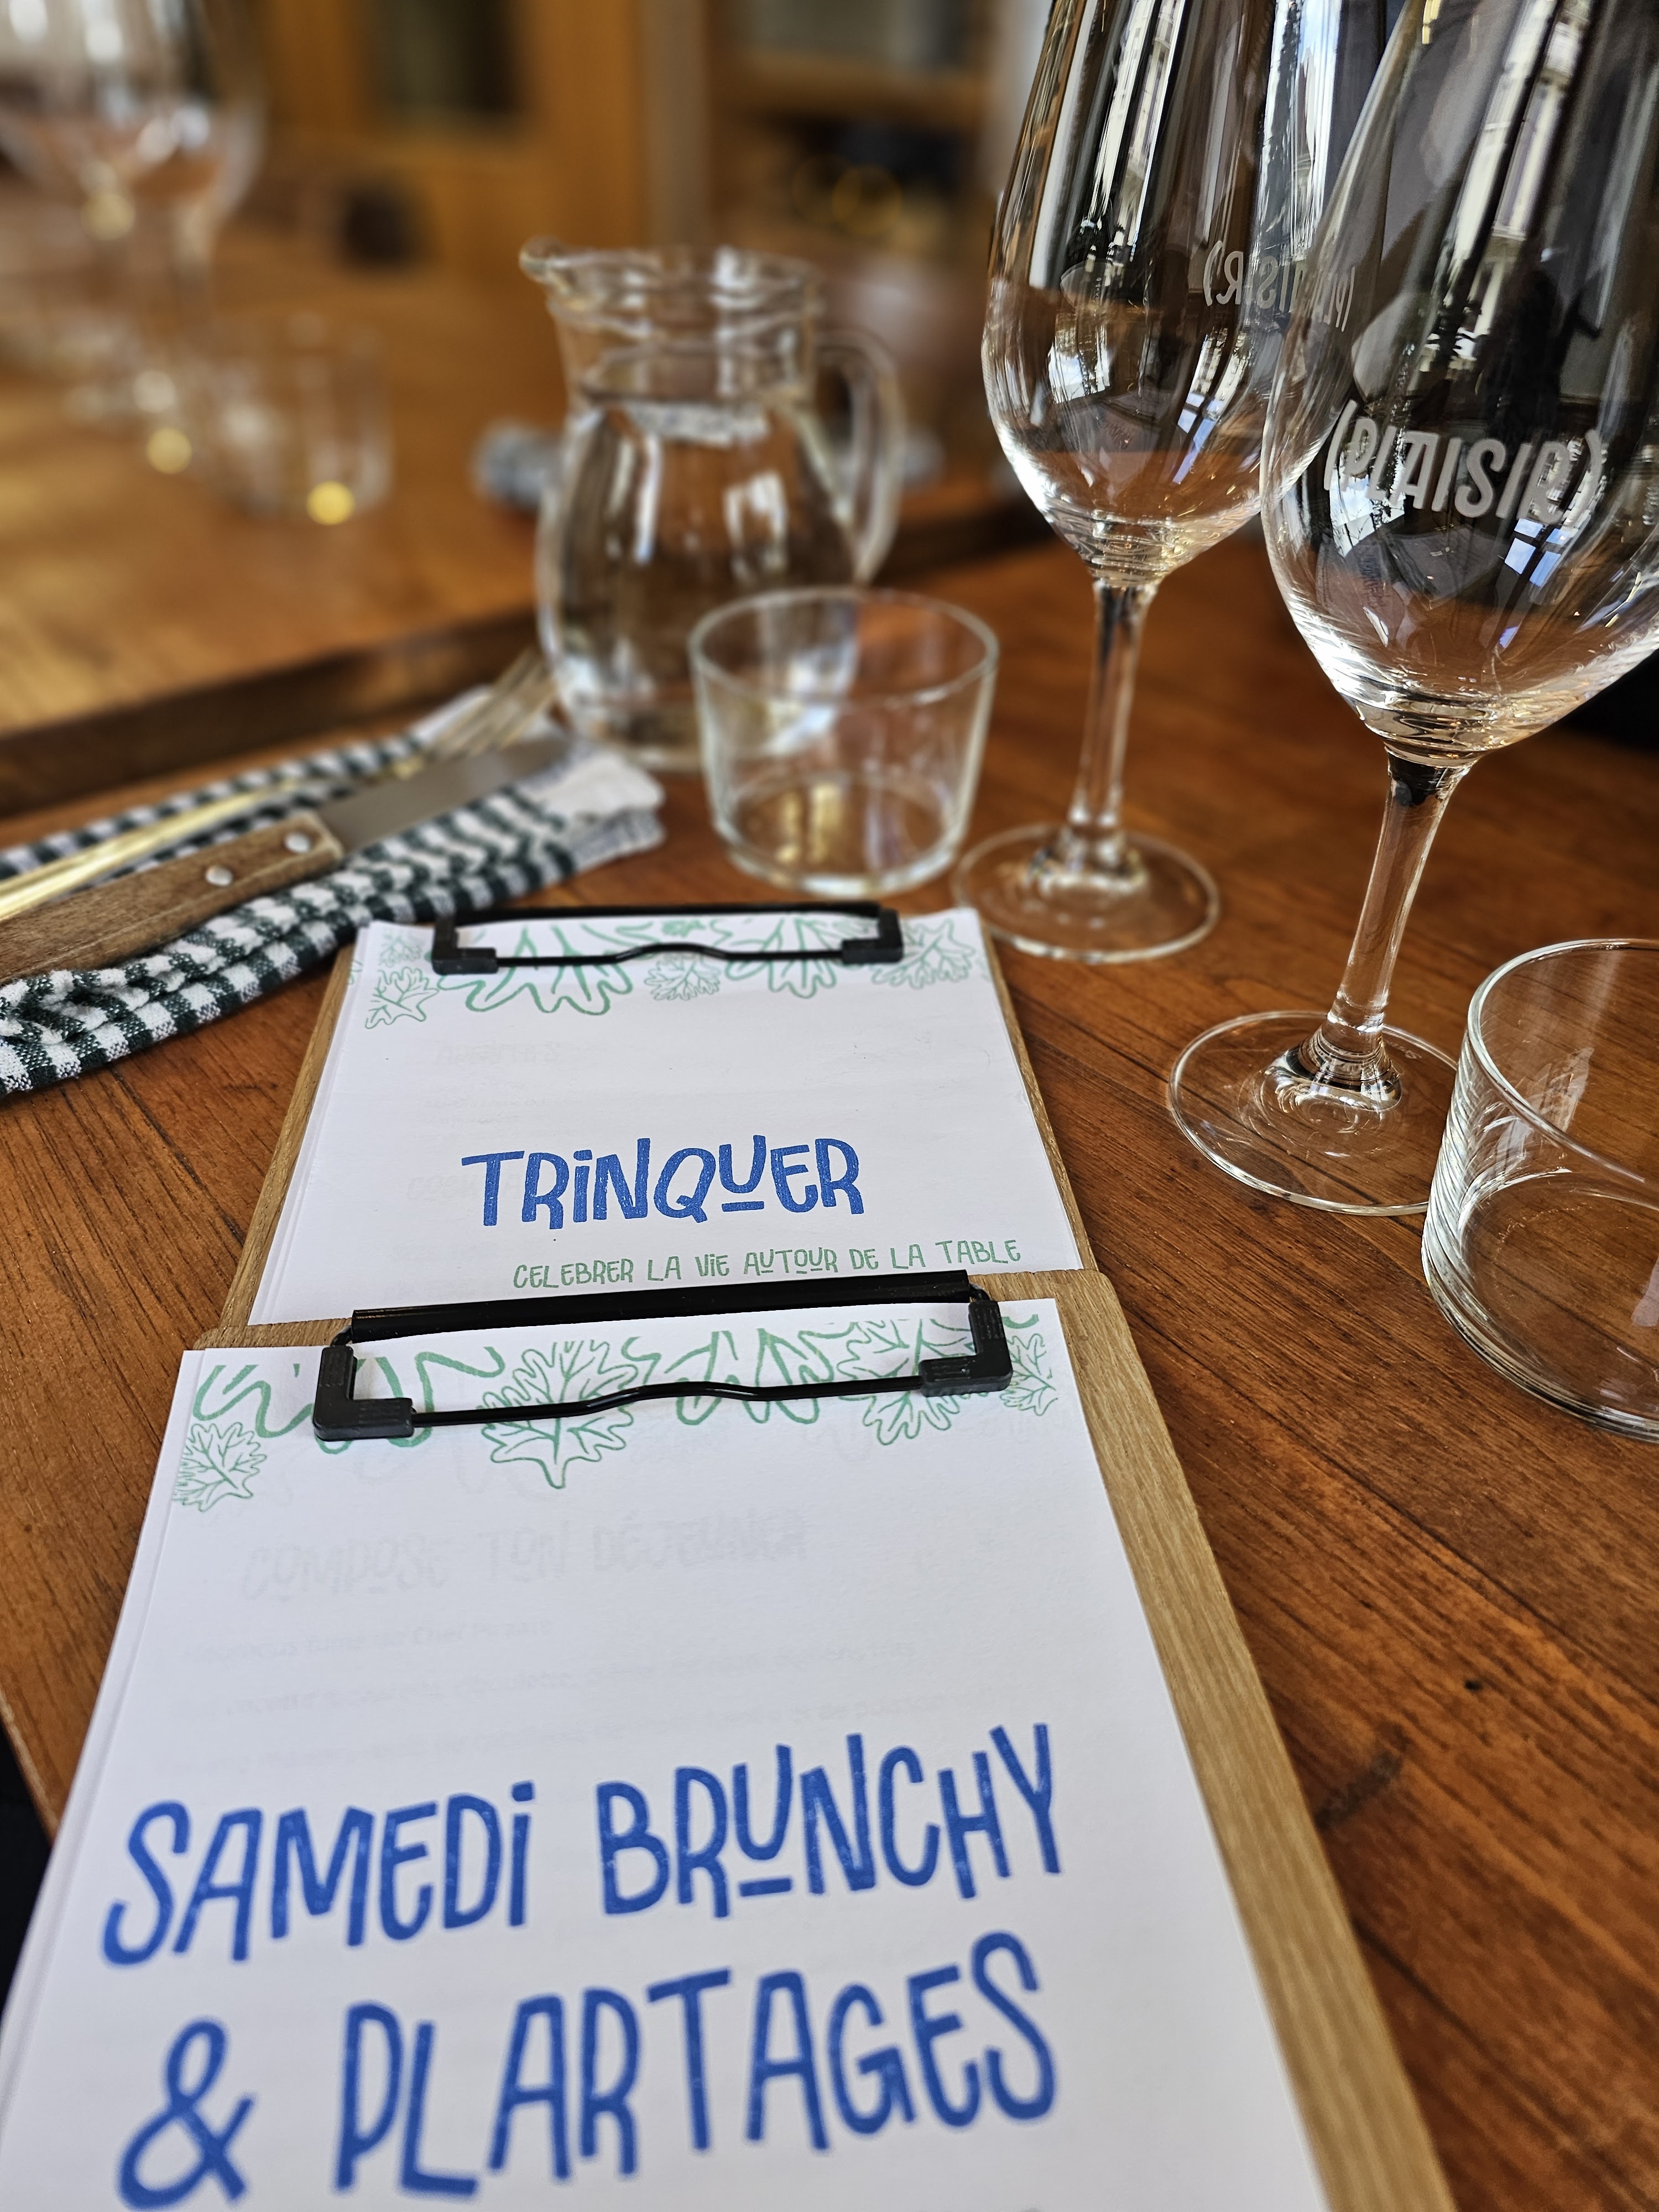 (PLAISIR)
(PLAISIR)
TRINQUER
CELEBRER LA VIE AUTOUR DE LA TABLE
COMPOSE TON DÉJEUNER
SAMEDI BRUNCHY
& PLARTAGES